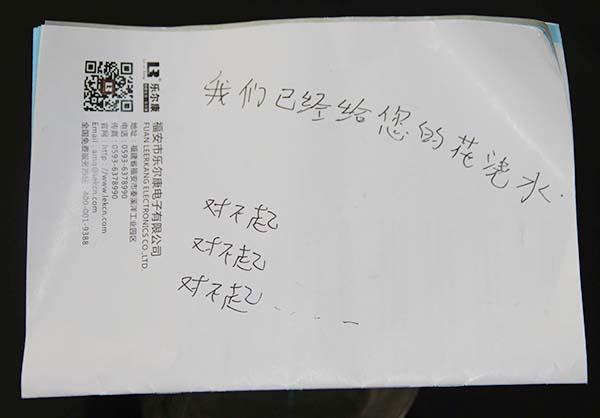 我们已经给您的花浇水.
对不起
对不起
对不起.....
LR 乐尔康
福安市乐尔康电子有限公司
FUAN LEERKANG ELECTRONICS CO.,LTD.
地址：福建省福安市秦溪洋工业园区
电话：0593-6378990
传真：0593-6378990
官网：http://www.lekcn.com
Email：amq@lekcn.com
全国免费服务热线：400-001-9388